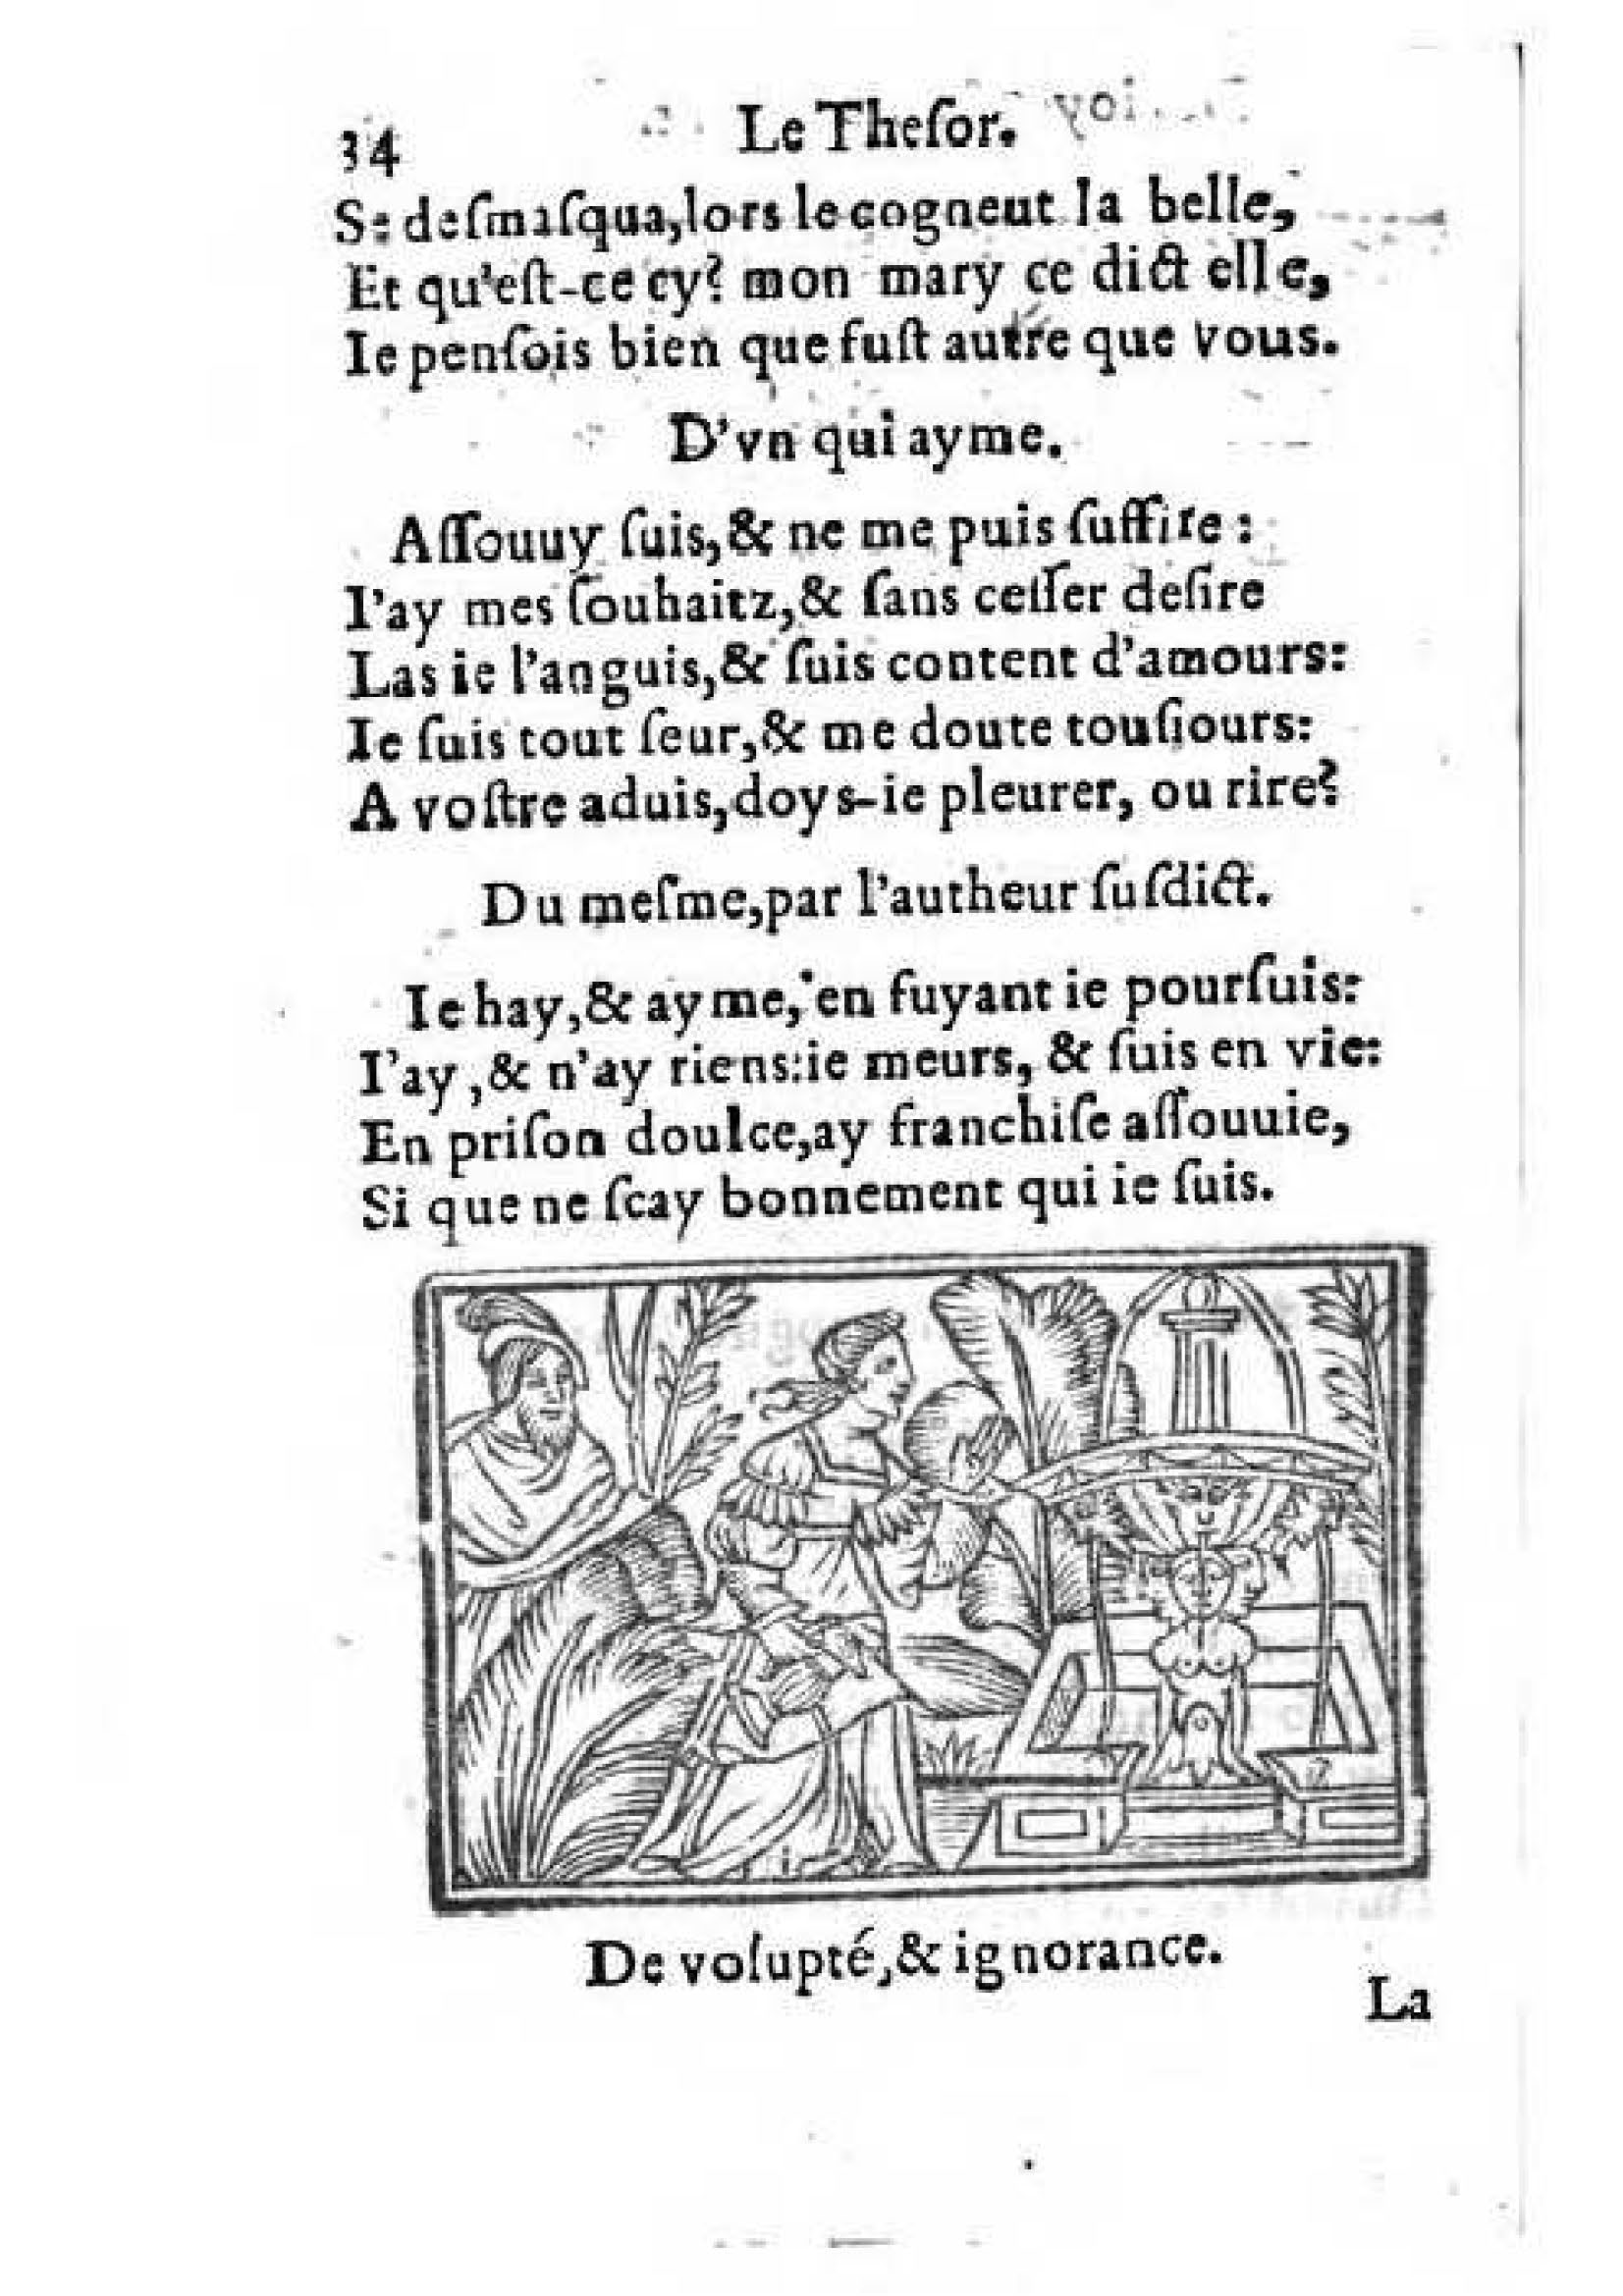 34 Le Theſor.
Se deſmaſqua,lors le cogneut la belle,
Et qu'eſt-ce cy? mon mary ce dict elle,
Ie penſois bien que fuſt autre que vous.
D'vn qui ayme.
Aſſouuy ſuis,& ne me puis ſuffire :
I'ay mes ſouhaitz,& ſans ceſſer deſire
Las ie l'anguis,& ſuis content d'amours:
Ie ſuis tout ſeur,& me doute touſiours:
A voſtre aduis,doys-ie pleurer, ou rire?
Du meſme,par l'autheur ſuſdict.
Ie hay,& ayme, en fuyant ie pourſuis:
I'ay,& n'ay riens:ie meurs, & ſuis en vie:
En priſon doulce,ay franchiſe aſſouuie,
Si que ne ſcay bonnement qui ie ſuis.
De volupté,& ignorance.
La